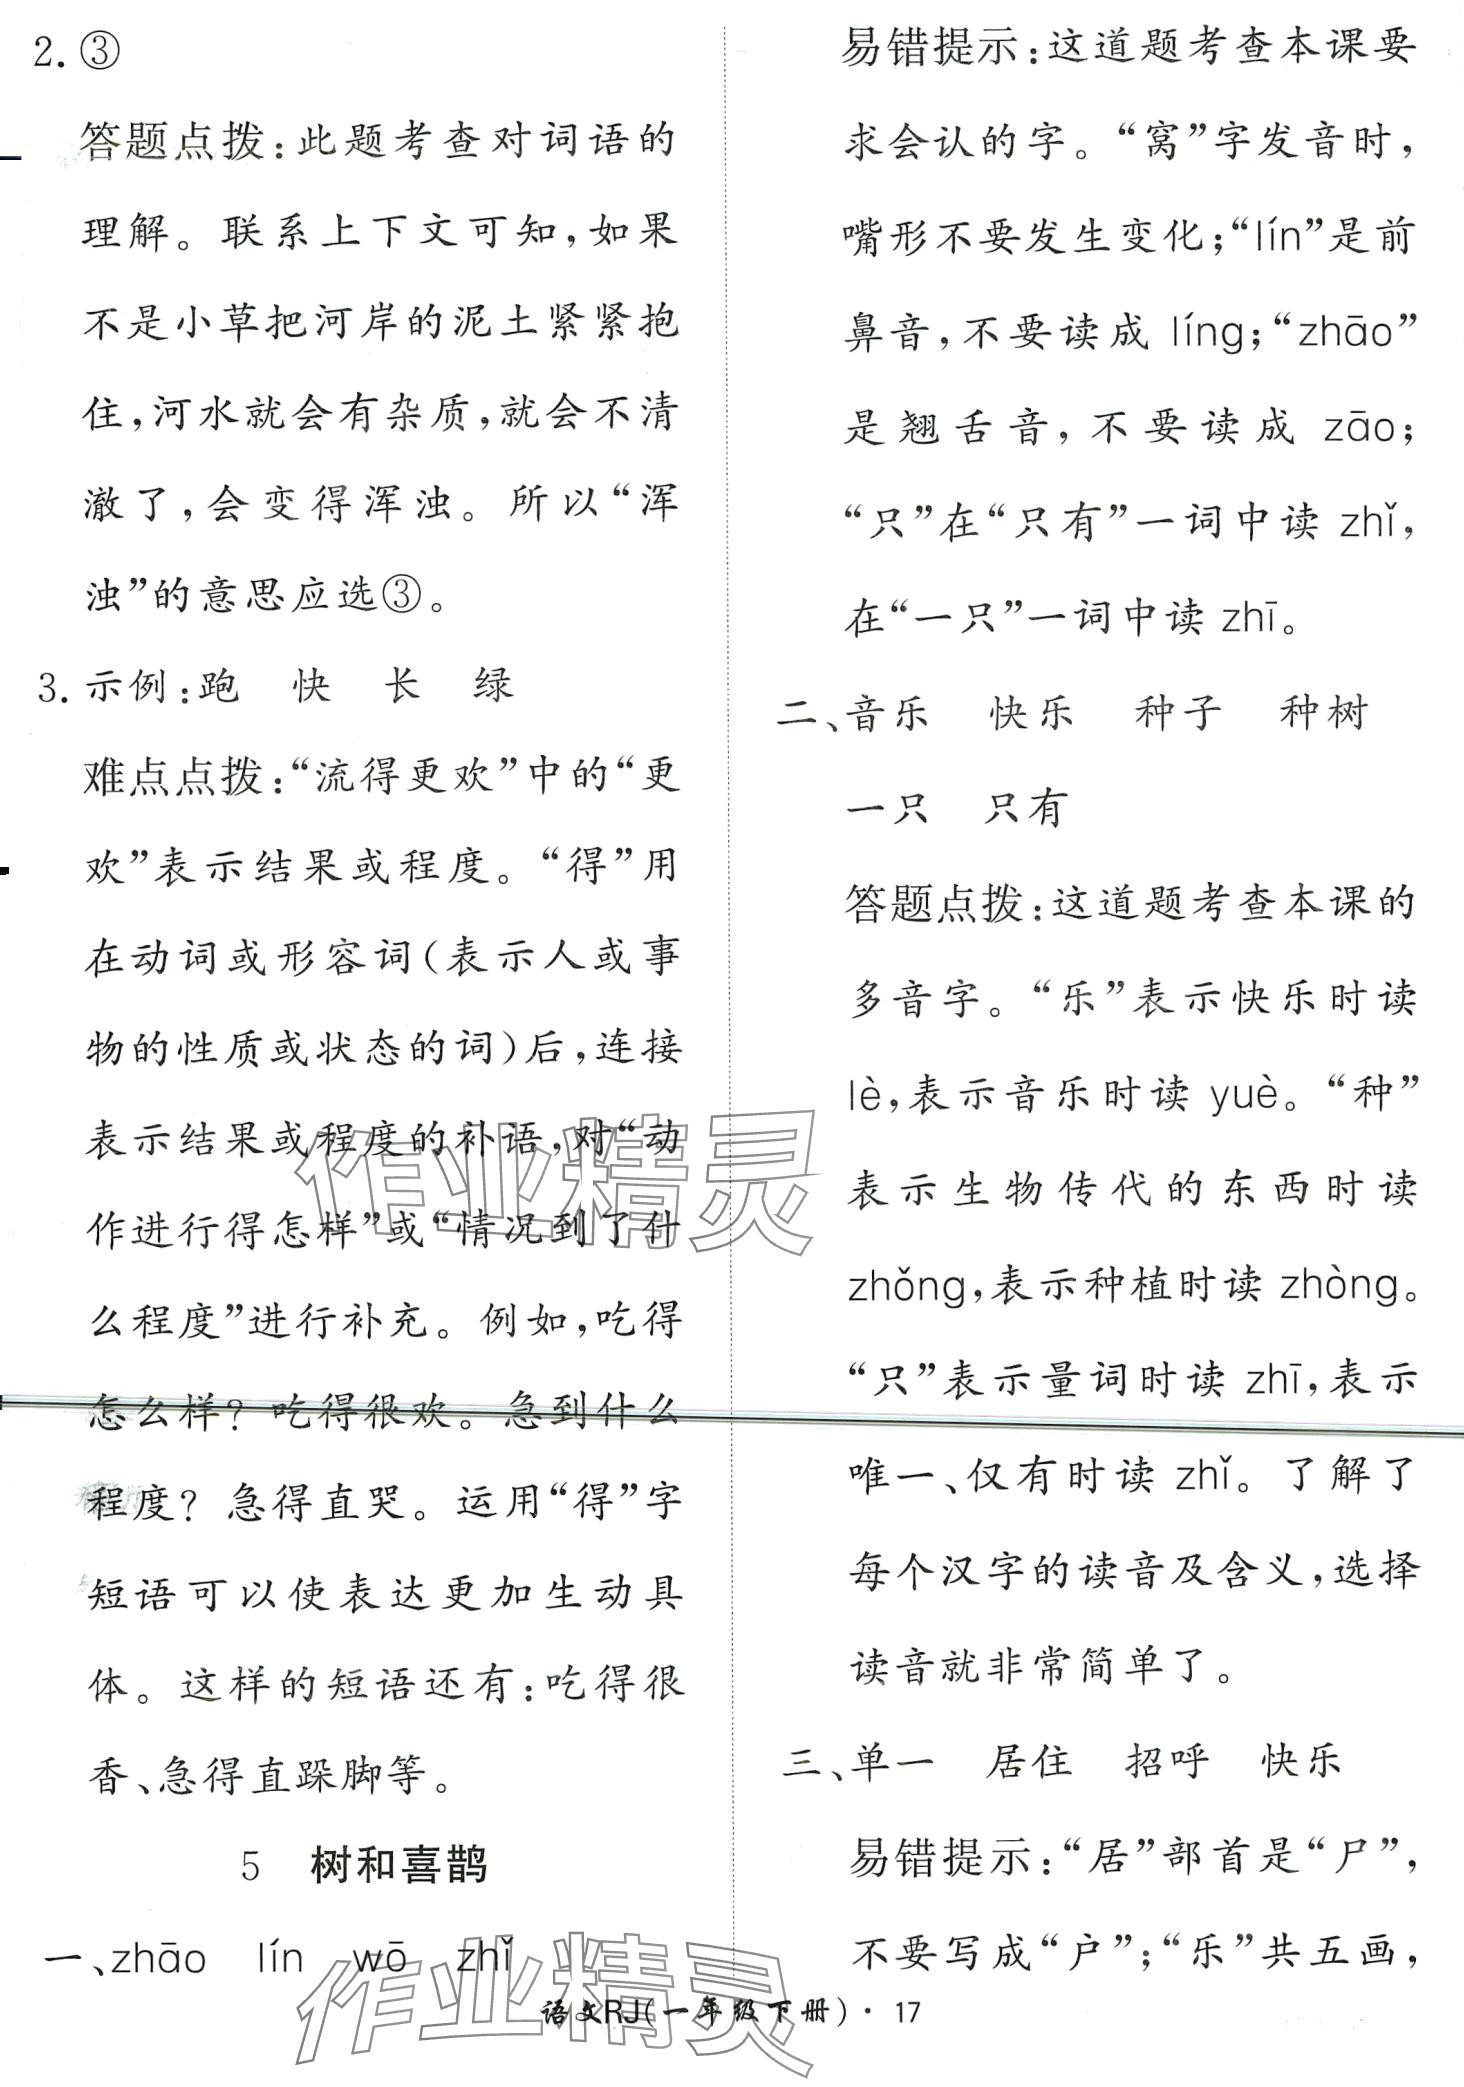 2. ③
答题点拨:此题考查对词语的
理解。联系上下文可知,如果
不是小草把河岸的泥土紧紧抱
住,河水就会有杂质,就会不清
澈了,会变得浑浊。所以“浑
浊”的意思应选③。
3. 示例:跑 快 长 绿
难点点拨:“流得更欢”中的“更
欢”表示结果或程度。“得”用
在动词或形容词(表示人或事
物的性质或状态的词)后,连接
表示结果或程度的补语,对“动
作进行得怎样”或“情况到了什
么程度”进行补充。例如,吃得
怎么样?吃得很欢。急到什么
程度?急得直哭。运用“得”字
短语可以使表达更加生动具
体。这样的短语还有:吃得很
香、急得直跺脚等。
5 树和喜鹊
一、zhāo lín wō zhǐ
易错提示:这道题考查本课要
求会认的字。“窝”字发音时,
嘴形不要发生变化;“lín”是前
鼻音,不要读成 líng;“zhāo”
是翘舌音,不要读成 zāo;
“只”在“只有”一词中读 zhǐ,
在“一只”一词中读 zhī。
二、音乐 快乐 种子 种树
一只 只有
答题点拨:这道题考查本课的
多音字。“乐”表示快乐时读
lè,表示音乐时读 yuè。“种”
表示生物传代的东西时读
zhǒng,表示种植时读 zhòng。
“只”表示量词时读 zhī,表示
唯一、仅有时读 zhǐ。了解了
每个汉字的读音及含义,选择
读音就非常简单了。
三、单一 居住 招呼 快乐
易错提示:“居”部首是“尸”,
不要写成“户”;“乐”共五画,
语文RJ(一年级下册)· 17
作业精灵
作业精灵